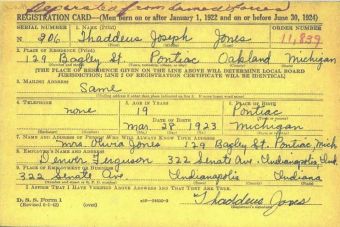 Separated from James Jones
REGISTRATION CARD—(Men born on or after January 1, 1922 and on or before June 30, 1924)
SERIAL NUMBER 1. NAME (Print) ORDER NUMBER
N 206 Thaddeus Joseph Jones 11,839
2. PLACE OF RESIDENCE (Print)
129 Bagley St. Pontiac Oakland Michigan
[THE PLACE OF RESIDENCE GIVEN ON THE LINE ABOVE WILL DETERMINE LOCAL BOARD
JURISDICTION; LINE 2 OF REGISTRATION CERTIFICATE WILL BE IDENTICAL]
3. MAILING ADDRESS
Same
4. TELEPHONE 5. AGE IN YEARS 6. PLACE OF BIRTH
none 19 Pontiac
DATE OF BIRTH
Mar. 28 1923 Michigan
7. NAME AND ADDRESS OF PERSON WHO WILL ALWAYS KNOW YOUR ADDRESS
Mrs. Olivia Jones 129 Bagley St. Pontiac, Mich
8. EMPLOYER'S NAME AND ADDRESS
Denver Ferguson 322 Senate Ave. Indianapolis, Ind.
9. PLACE OF EMPLOYMENT OR BUSINESS
322 Senate Ave. Indianapolis Indiana
I AFFIRM THAT I HAVE VERIFIED ABOVE ANSWERS AND THAT THEY ARE TRUE.
D. S. S. Form 1
Thaddeus Jones